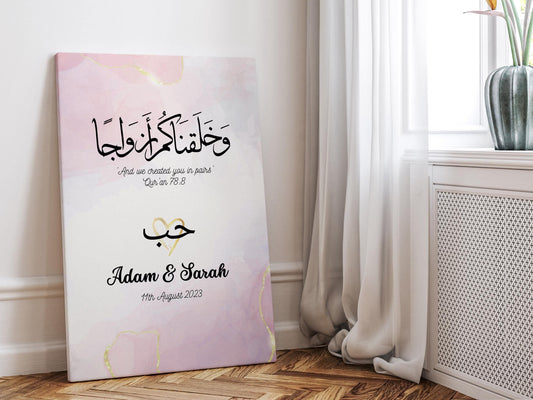 وَخَلَقْنَاكُمْ أَزْوَاجًا
'And we created you in pairs'
'Qur'an 78:8
حب
Adam & Sarah
11th August 2023